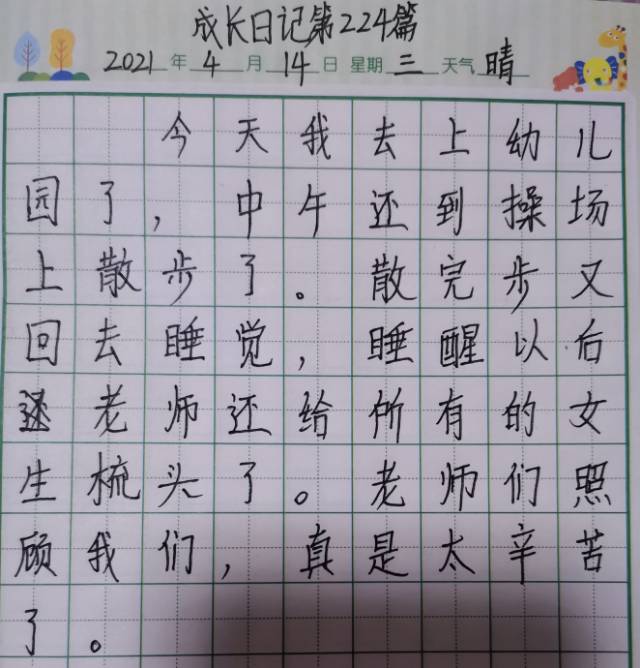 成长日记第224篇
2021年4月14日 星期三 天气晴
今天我去上幼儿
园了，中午还到操场
上散步了。散完步又
回去睡觉，睡醒以后
老师还给所有的女
生梳头了。老师们照
顾我们，真是太辛苦
了。